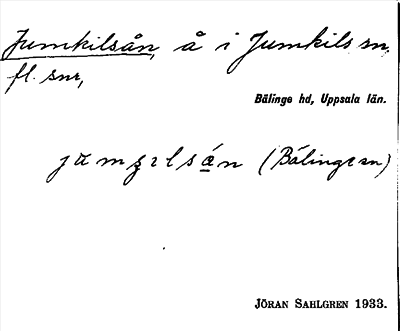 Jumkilsån, å i Jumkils sn,
fl. snr,
Bälinge hd, Uppsala län.
(Bälinge sn)
JÖRAN SAHLGREN 1933.